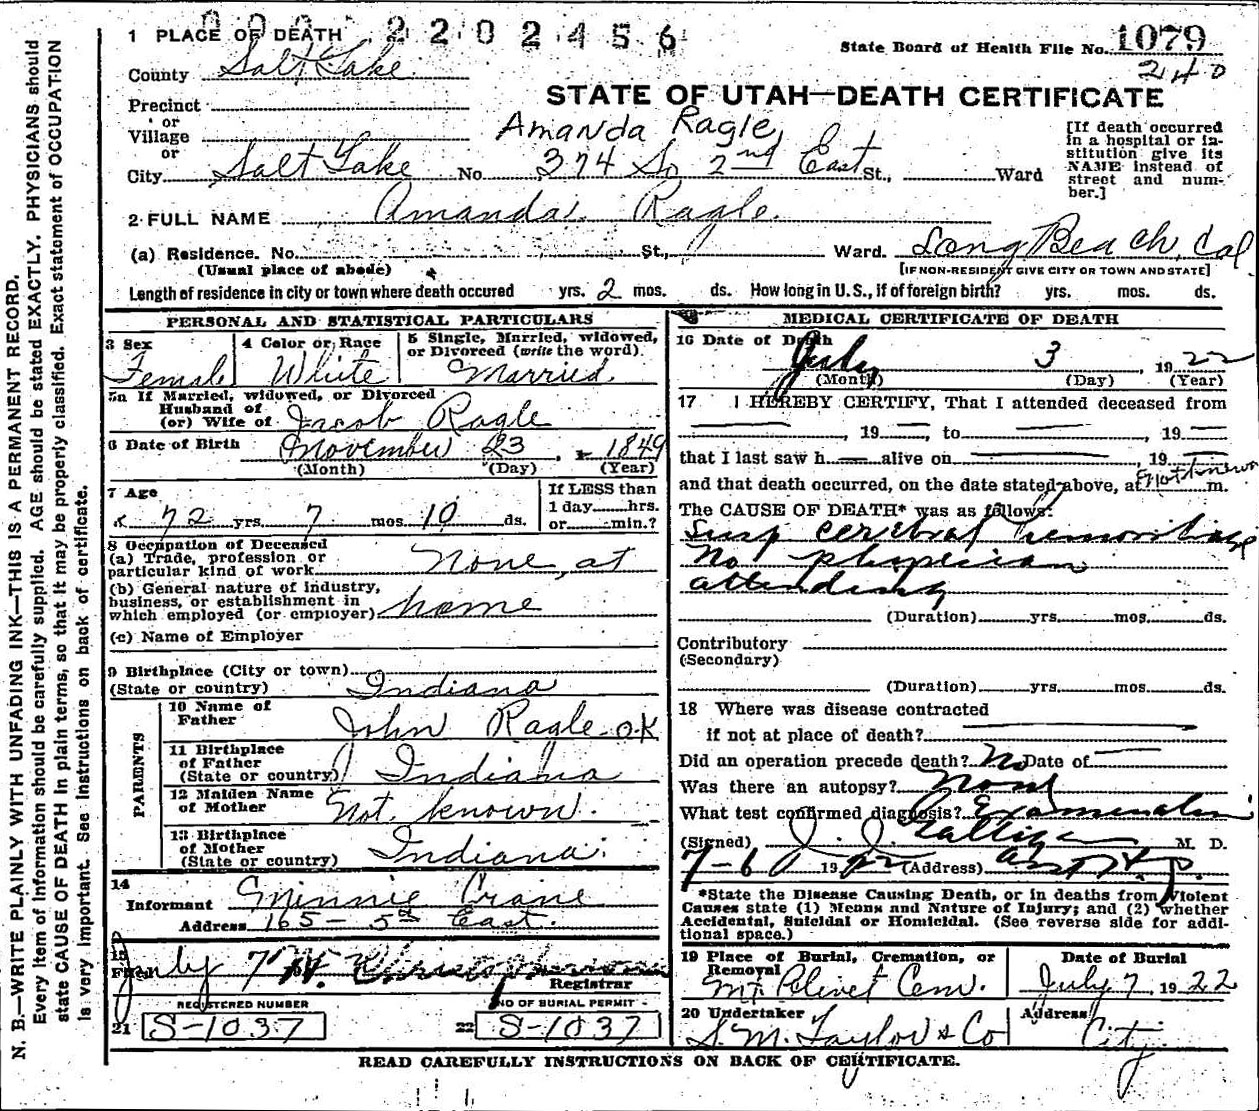 1 PLACE OF DEATH 000 2202456
State Board of Health File No. 1079
240
County Salt Lake
STATE OF UTAH—DEATH CERTIFICATE
Precinct
or
Village
or
Amanda Ragle
City Salt Lake No. 374 So 2nd East St., Ward
[If death occurred in a hospital or institution give its NAME instead of street and number.]
2 FULL NAME Amanda Ragle
(a) Residence. No. St., Ward. Long Beach, Cal
(Usual place of abode) [IF NON-RESIDENT GIVE CITY OR TOWN AND STATE]
Length of residence in city or town where death occured yrs. 2 mos. ds. How long in U.S., if of foreign birth? yrs. mos. ds.
PERSONAL AND STATISTICAL PARTICULARS
3 Sex Female
4 Color or Race White
5 Single, Married, widowed, or Divorced (write the word). Married
5a If Married, widowed, or Divorced
Husband of
(or) Wife of Jacob Ragle
6 Date of Birth November 23, 1849
(Month) (Day) (Year)
7 Age 72 yrs. 7 mos. 10 ds.
If LESS than
1 day hrs.
or min.?
8 Occupation of Deceased
(a) Trade, profession or
particular kind of work None, at
(b) General nature of industry,
business, or establishment in
which employed (or employer) home
(c) Name of Employer
9 Birthplace (City or town)
(State or country) Indiana
PARENTS
10 Name of
Father John Ragle O.K
11 Birthplace
of Father
(State or country) Indiana
12 Maiden Name
of Mother Not known.
13 Birthplace
of Mother
(State or country) Indiana.
14
Informant Minnie Crane
Address 165 - 5th East.
15
Filed July 7 W. Christopherson
Registrar
REGISTERED NUMBER
21 S-1037
NO OF BURIAL PERMIT
22 S-1037
MEDICAL CERTIFICATE OF DEATH
16 Date of Death July 3 1922
(Month) (Day) (Year)
17 I HEREBY CERTIFY, That I attended deceased from
— , 19 — , to — , 19 —
that I last saw h — alive on — , 19 —
and that death occurred, on the date stated above, at Not known m.
The CAUSE OF DEATH* was as follows:
Susp cerebral hemorrhage
No physician
attending
(Duration) yrs. mos. ds.
Contributory
(Secondary)
(Duration) yrs. mos. ds.
18 Where was disease contracted
if not at place of death? —
Did an operation precede death? No Date of —
Was there an autopsy? None
What test confirmed diagnosis? Examination
(Signed) J. J. Galligan M. D.
7-6 1922 (Address) Asst H.
*State the Disease Causing Death, or in deaths from Violent
Causes state (1) Means and Nature of Injury; and (2) whether
Accidental, Suicidal or Homicidal. (See reverse side for additional space.)
19 Place of Burial, Cremation, or
Removal Mt. Olivet Cem.
Date of Burial
July 7, 1922
20 Undertaker S. M. Taylor & Co
Address City
READ CAREFULLY INSTRUCTIONS ON BACK OF CERTIFICATE.
N. B.—WRITE PLAINLY WITH UNFADING INK—THIS IS A PERMANENT RECORD.
Every item of information should be carefully supplied. AGE should be stated EXACTLY. PHYSICIANS should
state CAUSE OF DEATH in plain terms, so that it may be properly classified. Exact statement of OCCUPATION
is very important. See instructions on back of certificate.